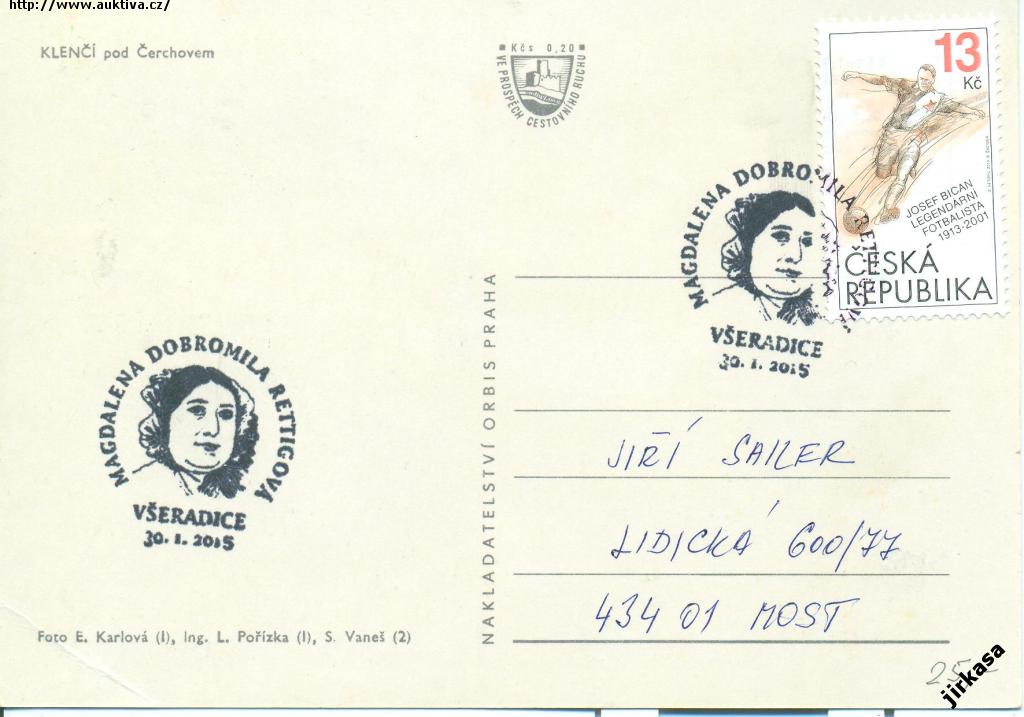 http://www.auktiva.cz/
KLENČÍ pod Čerchovem
Kčs 0,20
VE PROSPĚCH CESTOVNÍHO RUCHU
13
Kč
JOSEF BICAN
LEGENDÁRNÍ
FOTBALISTA
1913-2001
ČESKÁ
REPUBLIKA
MAGDALENA DOBROMILA RETTIGOVÁ
VŠERADICE
30. 1. 2015
MAGDALENA DOBROMILA RETTIGOVÁ
VŠERADICE
30. 1. 2015
NAKLADATELSTVÍ ORBIS PRAHA
JIŘÍ SAILER
LIDICKÁ 600/77
434 01 MOST
Foto E. Karlová (1), Ing. L. Pořízka (1), S. Vaneš (2)
jirkasa